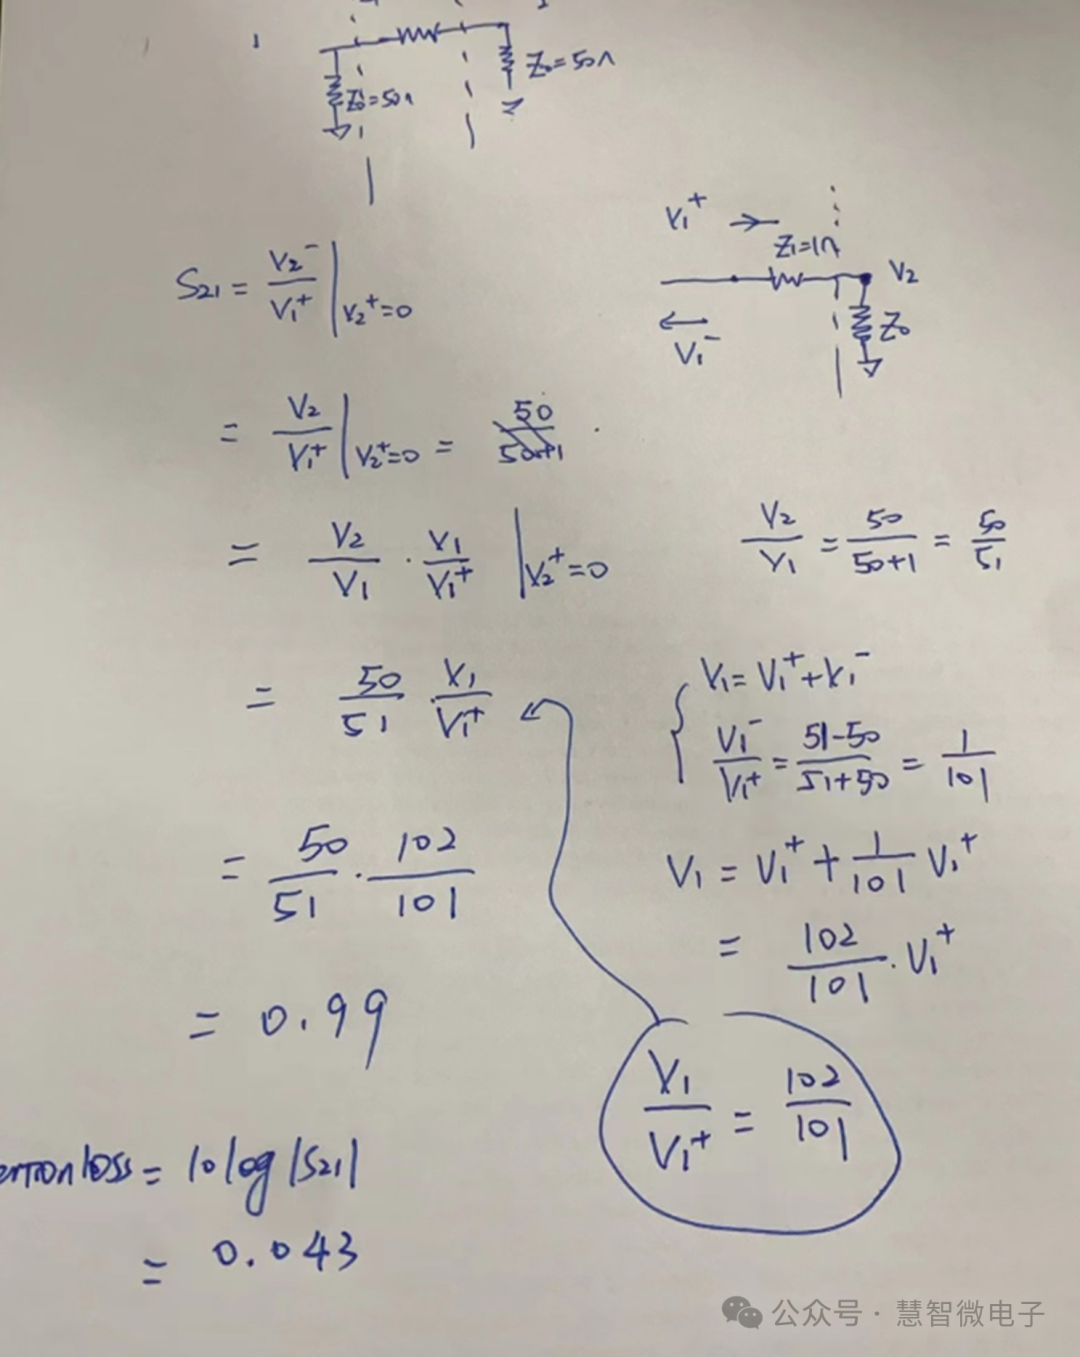 Z₀=50Ω
Z₀=50Ω
V₁⁺ →
Z₁=1Ω
V₂
Z₀
← V₁⁻
S₂₁ = V₂⁻/V₁⁺ |V₂⁺=0
= V₂/V₁⁺ |V₂⁺=0 = 50/50+1
= V₂/V₁ · V₁/V₁⁺ |V₂⁺=0
V₂/V₁ = 50/50+1 = 50/51
= 50/51 · V₁/V₁⁺
V₁=V₁⁺+V₁⁻
V₁⁻/V₁⁺ = 51-50/51+50 = 1/101
= 50/51 · 102/101
V₁ = V₁⁺ + 1/101 V₁⁺
= 102/101 · V₁⁺
= 0.99
V₁/V₁⁺ = 102/101
loss = 10log|S₂₁|
= 0.043
公众号 · 慧智微电子